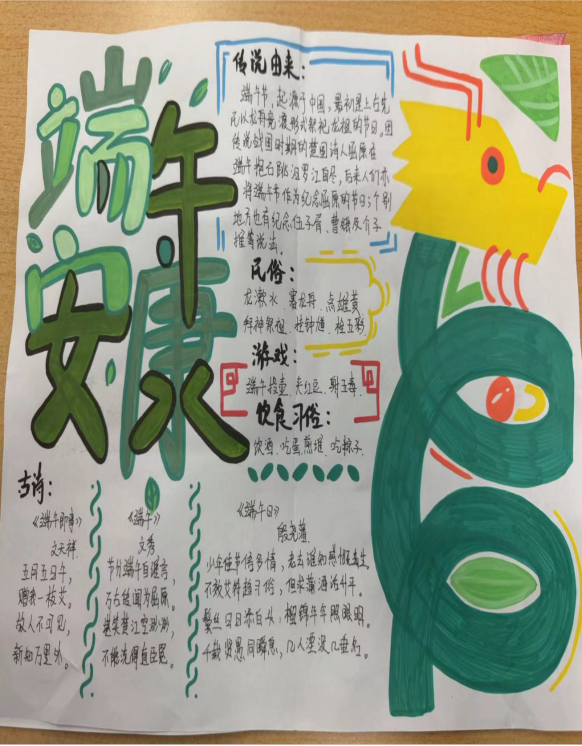 端午
安康
传说由来：
端午节，起源于中国，最初是上古先
民以龙舟竞渡形式祭祀龙祖的节日。因
传说战国时期的楚国诗人屈原在
端午抱石跳汨罗江自尽，后来人们亦
将端午节作为纪念屈原的节日；个别
地方也有纪念伍子胥、曹娥及介子
推等说法。
民俗：
龙漱水、赛龙舟、点雄黄
拜神祭祖、挂钟馗、拴五彩
游戏：
端午投壶、夹红豆、射五毒
饮食习俗：
饮酒、吃蛋、煎堆、吃粽子
古诗：
《端午即事》
文天祥
五月五日午，
赠我一枝艾。
故人不可见，
新知万里外。
《端午》
文秀
节分端午自谁言，
万古传闻为屈原。
堪笑楚江空渺渺，
不能洗得直臣冤。
《端午日》
殷尧藩
少年佳节倍多情，老去谁知感慨生。
不效艾符趋习俗，但祈蒲酒话升平。
鬓丝日日添白头，榴锦年年照眼明。
千载贤愚同瞬息，几人湮没几垂名。